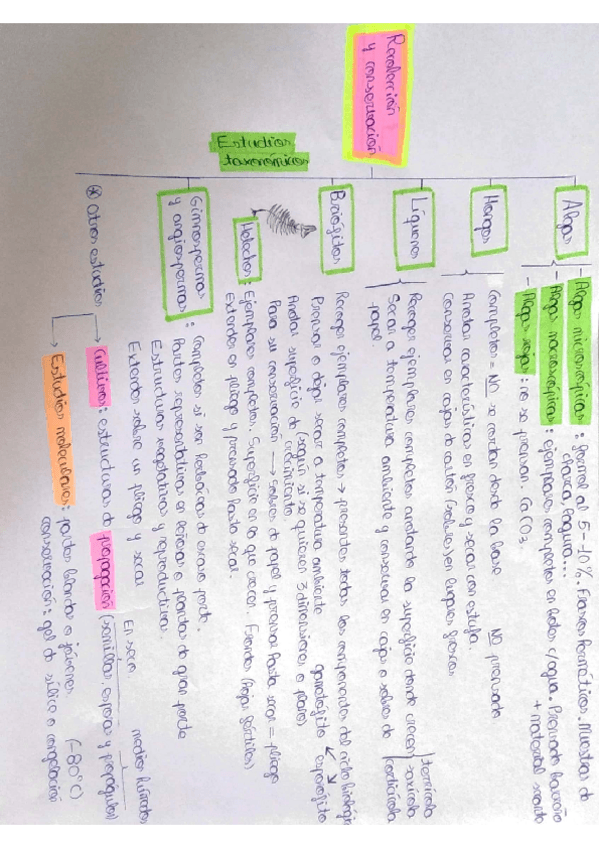 Recolección
y conservación
Estudios
taxonómicos
Algas
- Algas microscópicas: formol al 5-10%. Frascos herméticos. Muestras de
charca, laguna...
- Algas macroscópicas: ejemplares completos en botes c/agua. Prensado húmedo
+ material secante
- Algas rojas: no se prensan. CaCO3.
Hongos
Completos = NO se cortan desde la base NO prensado
Anotar características en fresco y secar con estufa.
Conservar en cajas de cartón (sobres) en lugares frescos
Líquenes
Recoger ejemplares completos anotando la superficie donde crecen
terrícola
saxícola
corticícola
Secar a temperatura ambiente y conservar en cajas o sobres de
papel
Briofitos
Recoger ejemplares completos → presentes todos los componentes del ciclo biológico
gametófito esporófito
Prensar o dejar secar a temperatura ambiente
(según si se quieren 3 dimensiones o plano)
Anotar superficie de crecimiento.
Para su conservación → sobres de papel y prensar hasta secar = pliego
Helechos: Ejemplares completos. Superficie en la que crecen. Frondes (hojas fértiles)
Extender en pliego y prensado hasta secar.
Gimnospermas
y angiospermas
: Completas si son herbáceas de escaso porte.
Partes representativas en leñosas o plantas de gran porte
Estructuras vegetativas y reproductivas.
Extender sobre un pliego y secar
* Otros estudios
Cultivos: estructuras de propagación (semillas, esporas y propágulos)
En seco. medios húmedos
Estudios moleculares: partes blandas o jóvenes
conservación: gel de sílice o congelación
(-80°C)